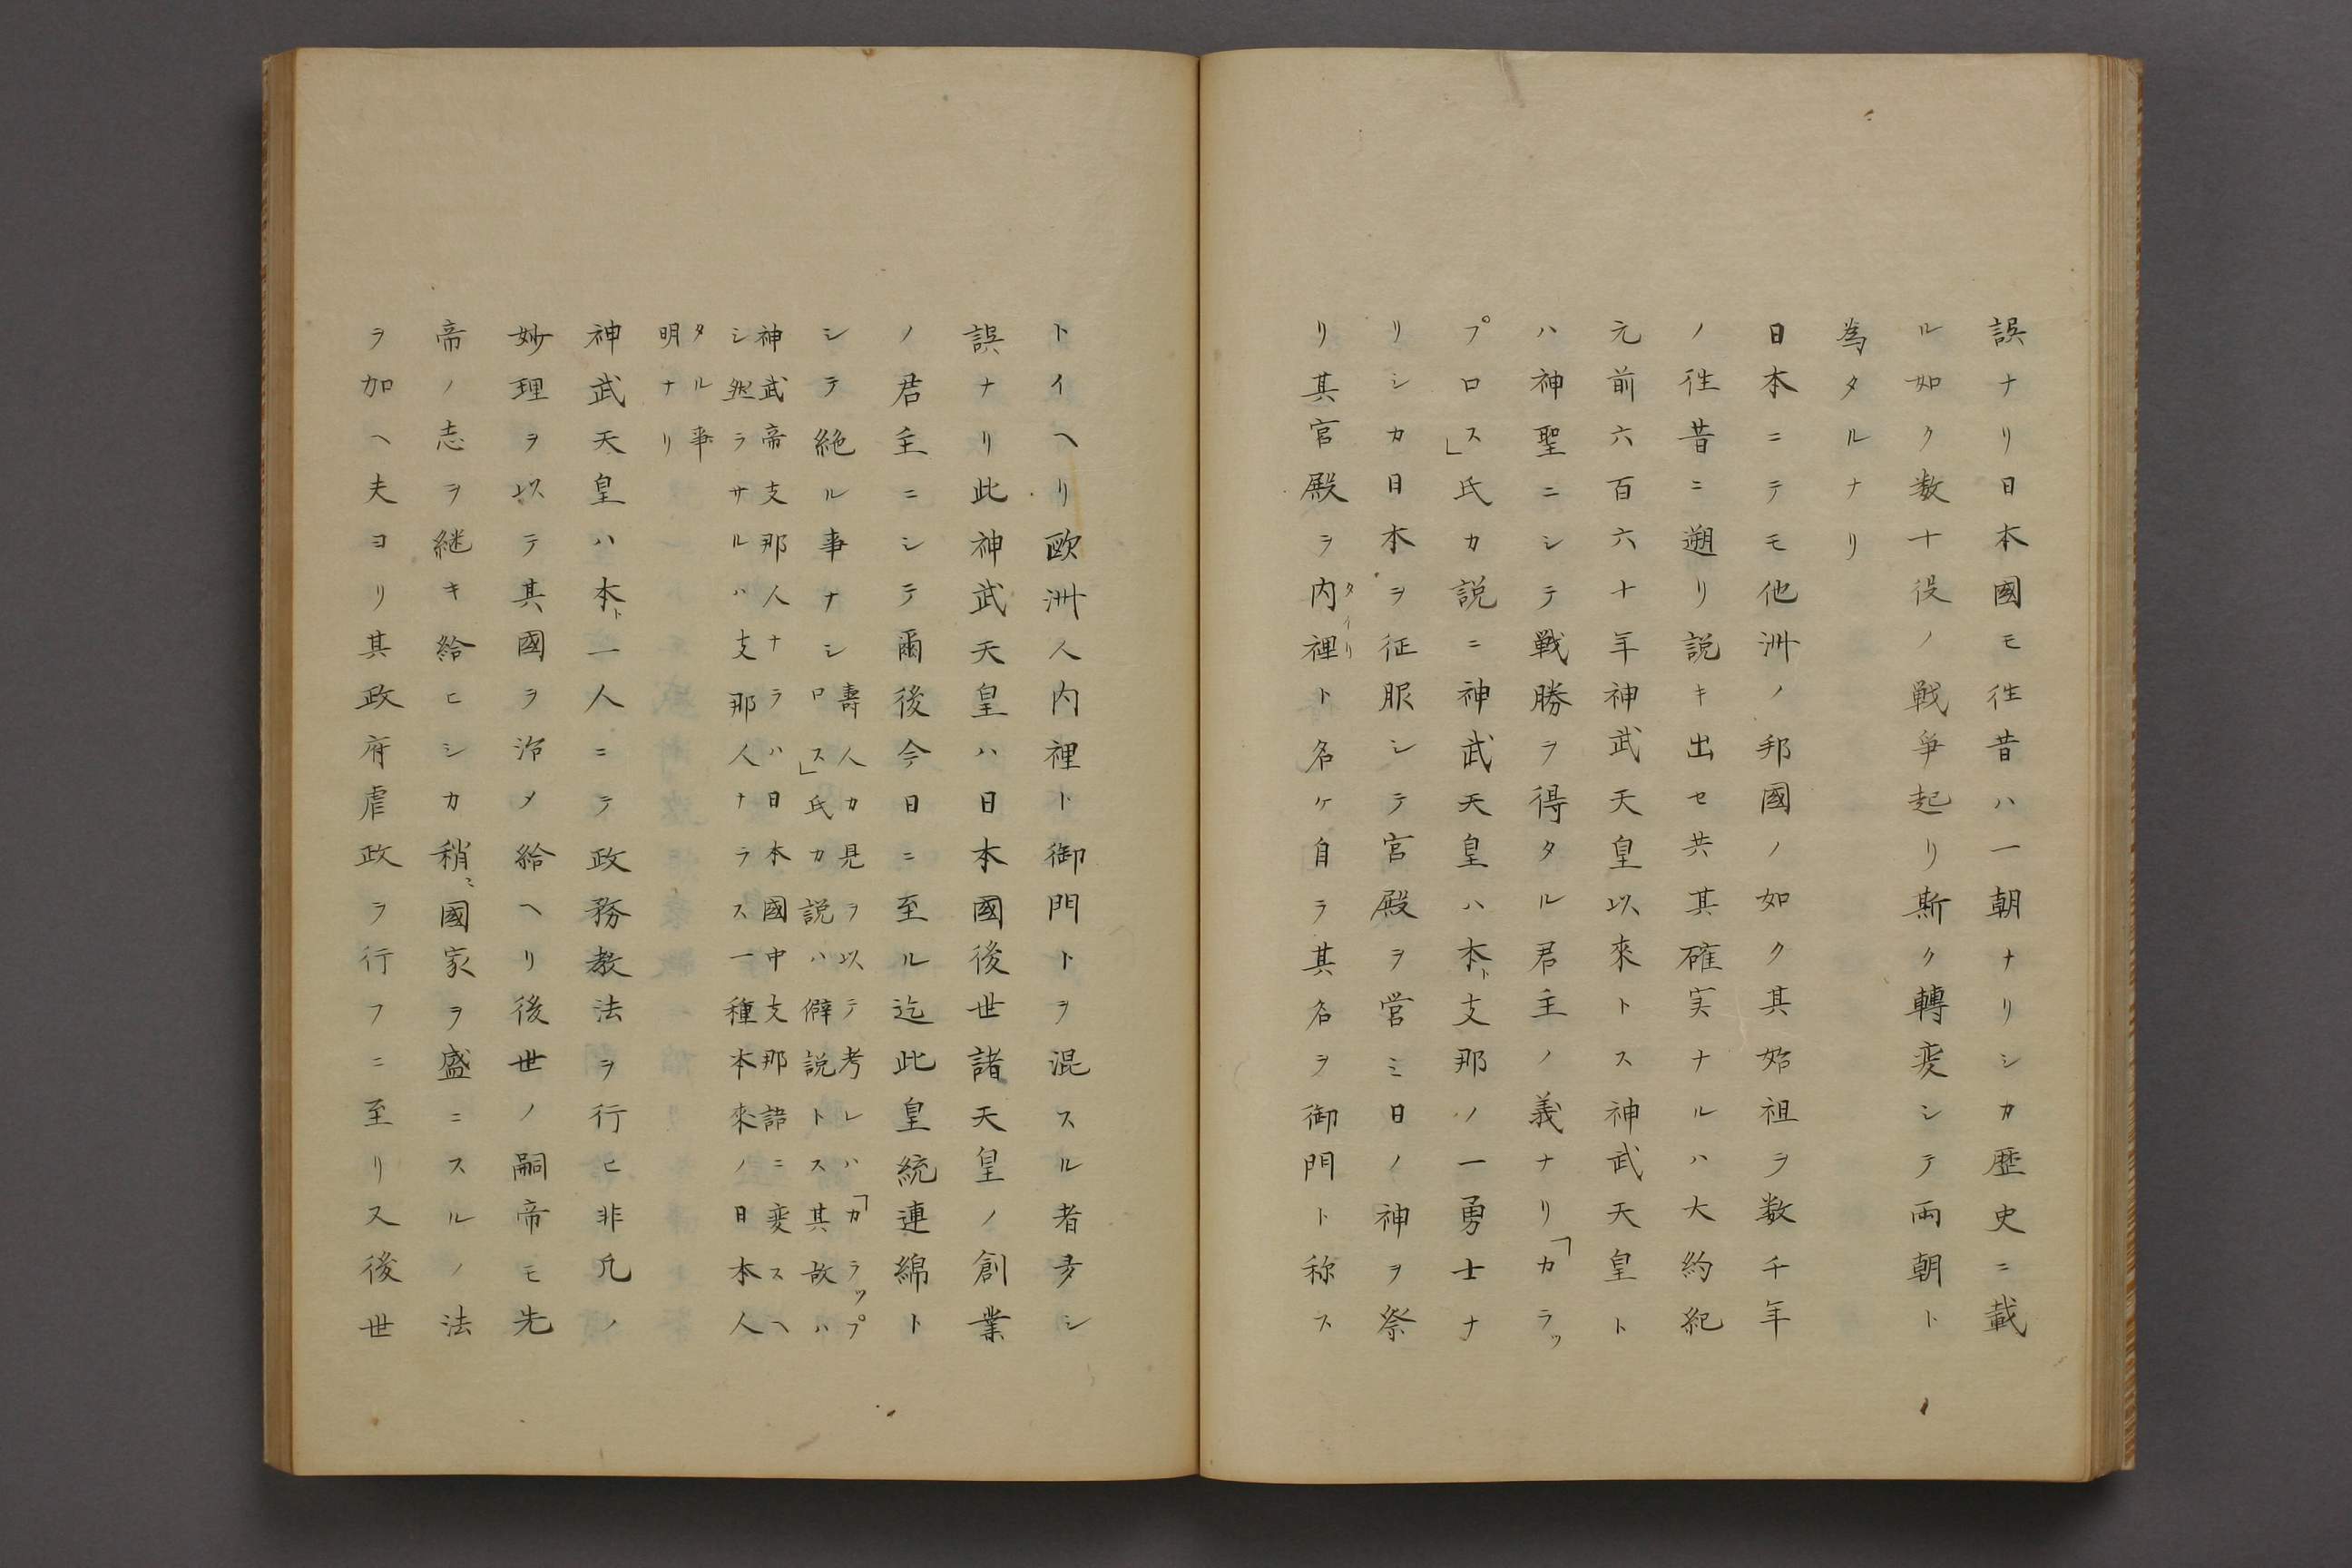 誤ナリ日本國モ徃昔ハ一朝ナリシカ歴史ニ載
ル如ク数十役ノ戦爭起リ斯ク轉変シテ両朝ト
為タルナリ
日本ニテモ他洲ノ邦國ノ如ク其始祖ヲ数千年
ノ徃昔ニ遡リ説キ出セ共其確実ナルハ大約紀
元前六百六十年神武天皇以來トス神武天皇ト
ハ神聖ニシテ戦勝ヲ得タル君主ノ義ナリ「カラッ
プロス」氏カ説ニ神武天皇ハ本ト支那ノ一勇士ナ
リシカ日本ヲ征服シテ宮殿ヲ営ミ日ノ神ヲ祭
リ其官殿ヲ内裡ト名ケ自ラ其名ヲ御門ト称ス
タイリ
トイヘリ歐洲人内裡ト御門トヲ混スル者多シ
誤ナリ此神武天皇ハ日本國後世諸天皇ノ創業
ノ君主ニシテ爾後今日ニ至ル迄此皇統連綿ト
シテ絶ル事ナシ
壽人カ見ヲ以テ考レハ「カラップ
ロス」氏カ説ハ僻説トス其故ハ
神武帝支那人ナラハ日本國中支那語ニ変スヘ
シ然ラサルハ支那人ナラス一種本來ノ日本人
タル事
明ナリ
神武天皇ハ本ト一人ニテ政務教法ヲ行ヒ非凡ノ
妙理ヲ以テ其國ヲ治メ給ヘリ後世ノ嗣帝モ先
帝ノ志ヲ継キ給ヒシカ稍ミ國家ヲ盛ニスルノ法
ヲ加ヘ夫ヨリ其政府虐政ヲ行フニ至リス後世